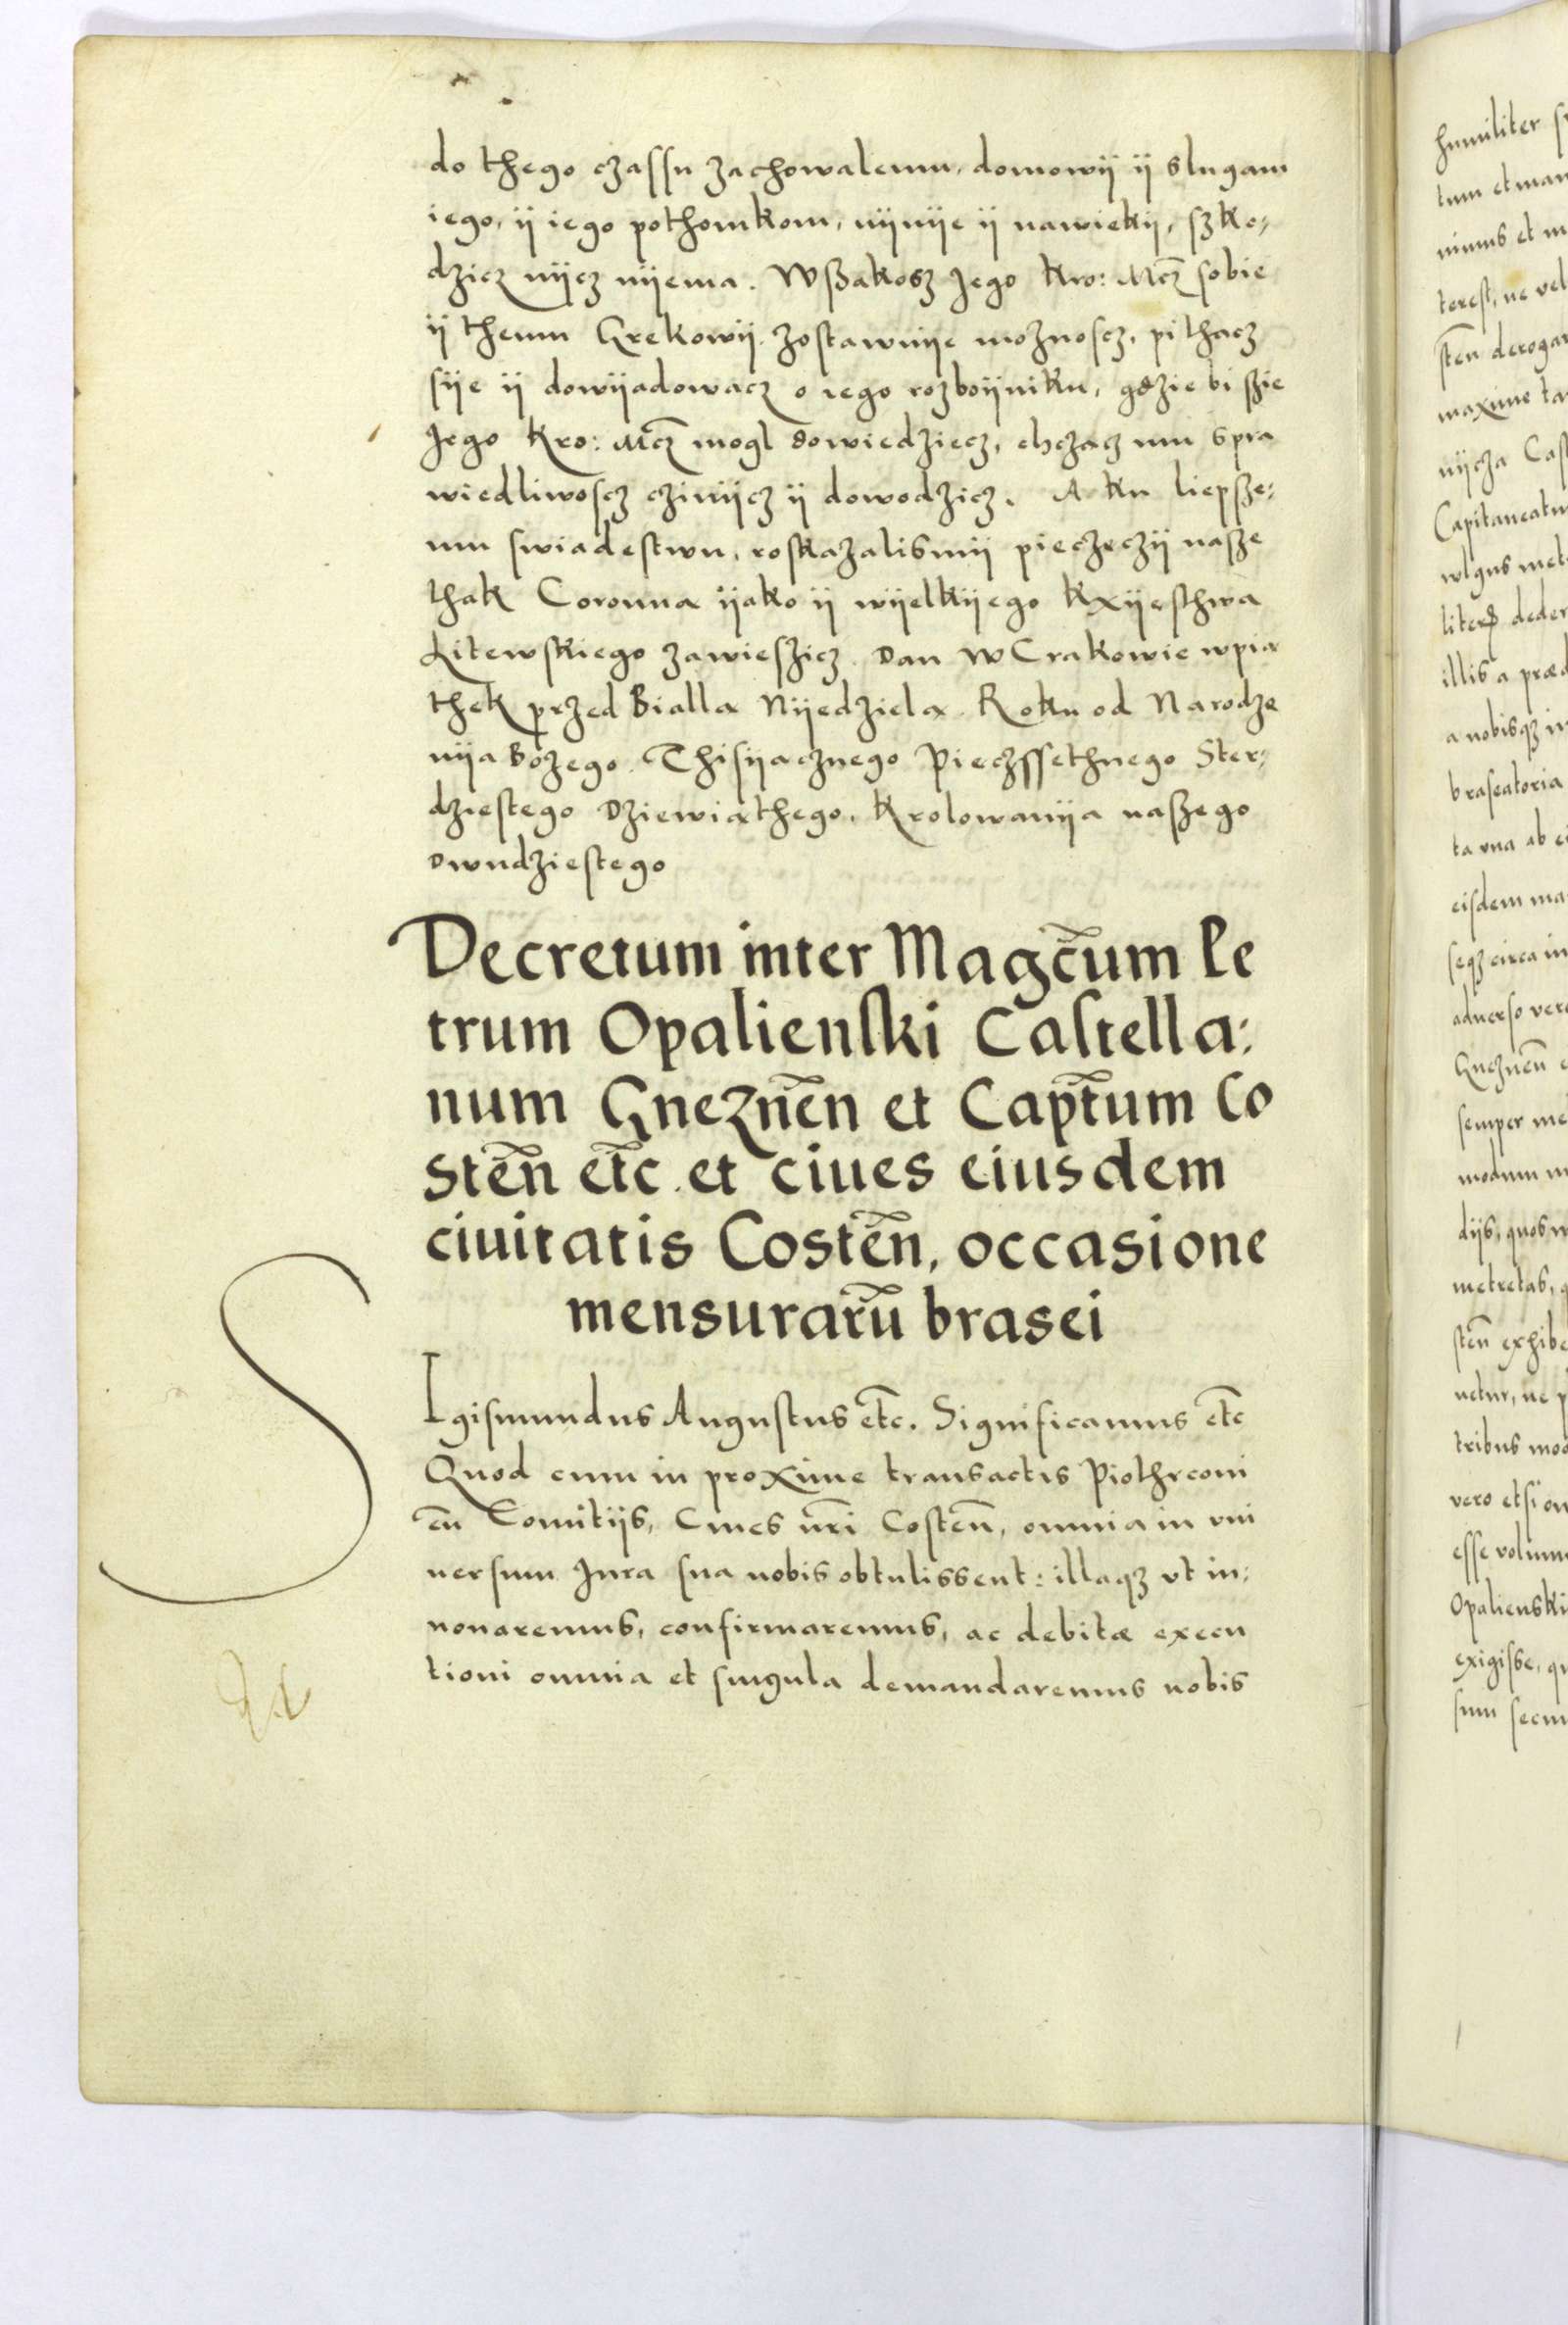 do thego czassu zachowalemu, domowÿ ÿ slugam
iego, ÿ iego pothomkom, nÿnÿe ÿ nawiekÿ, szko⸗
dzicz nÿcz nÿema. Wßakosz Jego Kro: Mcz̃ sobie
ÿ themu Grekowÿ zostawuÿe moznoscz, pithacz
sÿe ÿ dowÿadowacz o iego rozboÿniku, gdzie bi szie
Jego Kro: Mcz̃ mogl dowiedziecz, chczacz mu spra
wiedliwoscz czinÿcz ÿ dowodzicz. A ku liepsze:
mu swiadestwu, roskazalismÿ pieczęczÿ nasze
thak Coronna ÿako ÿ wÿelkÿego Kxÿęsthwa
Litewskiego zawieszicz. Dan W Crakowie wpią
thek przed Bialla Nÿedzielą. Roku od Narodze
nÿa Bozego. Thisÿacznego Pieczssethnego Ster⸗
dziestego Dziewiąthego. Krolowanÿa naszego
Dwudziestego
Decretum inter Magc̃um Pe
trum Opalienski Castella:
num Gnezñen et Capt̃um Co
steñ et̃c et ciues eiusdem
ciuitatis Costeñ, occasione
mensurarũ brasei
S
Igismundus Augustus et̃c. Significamus et̃c
Quod cum in proxime transactis Piothrconi
eñ Comitijs, Ciues nr̃i Costeñ, omnia in vni
uersum Jura sua nobis obtulissent: illaqꝫ vt in:
nouaremus, confirmaremus, ac debitæ execu
tioni omnia et singula demandaremus nobis
humiliter
tum et man
nimus et m
terest, ne vel
steñ derogar
maxime ta
nÿcza Cas
Capitaneatu
wlgus met
dede
illis a præd
a nobisqꝫ in
braseatoria
ta vna ab e
eisdem ma
seqꝫ circa in
aduerso vero
Gnezneñ
semper me
modum m
dijs, quos
metretas,
steñ exhibe
uetur, ne p
tribus mo
vero etsi om
esse volum
Opalienski
exigisse, qu
sum secu